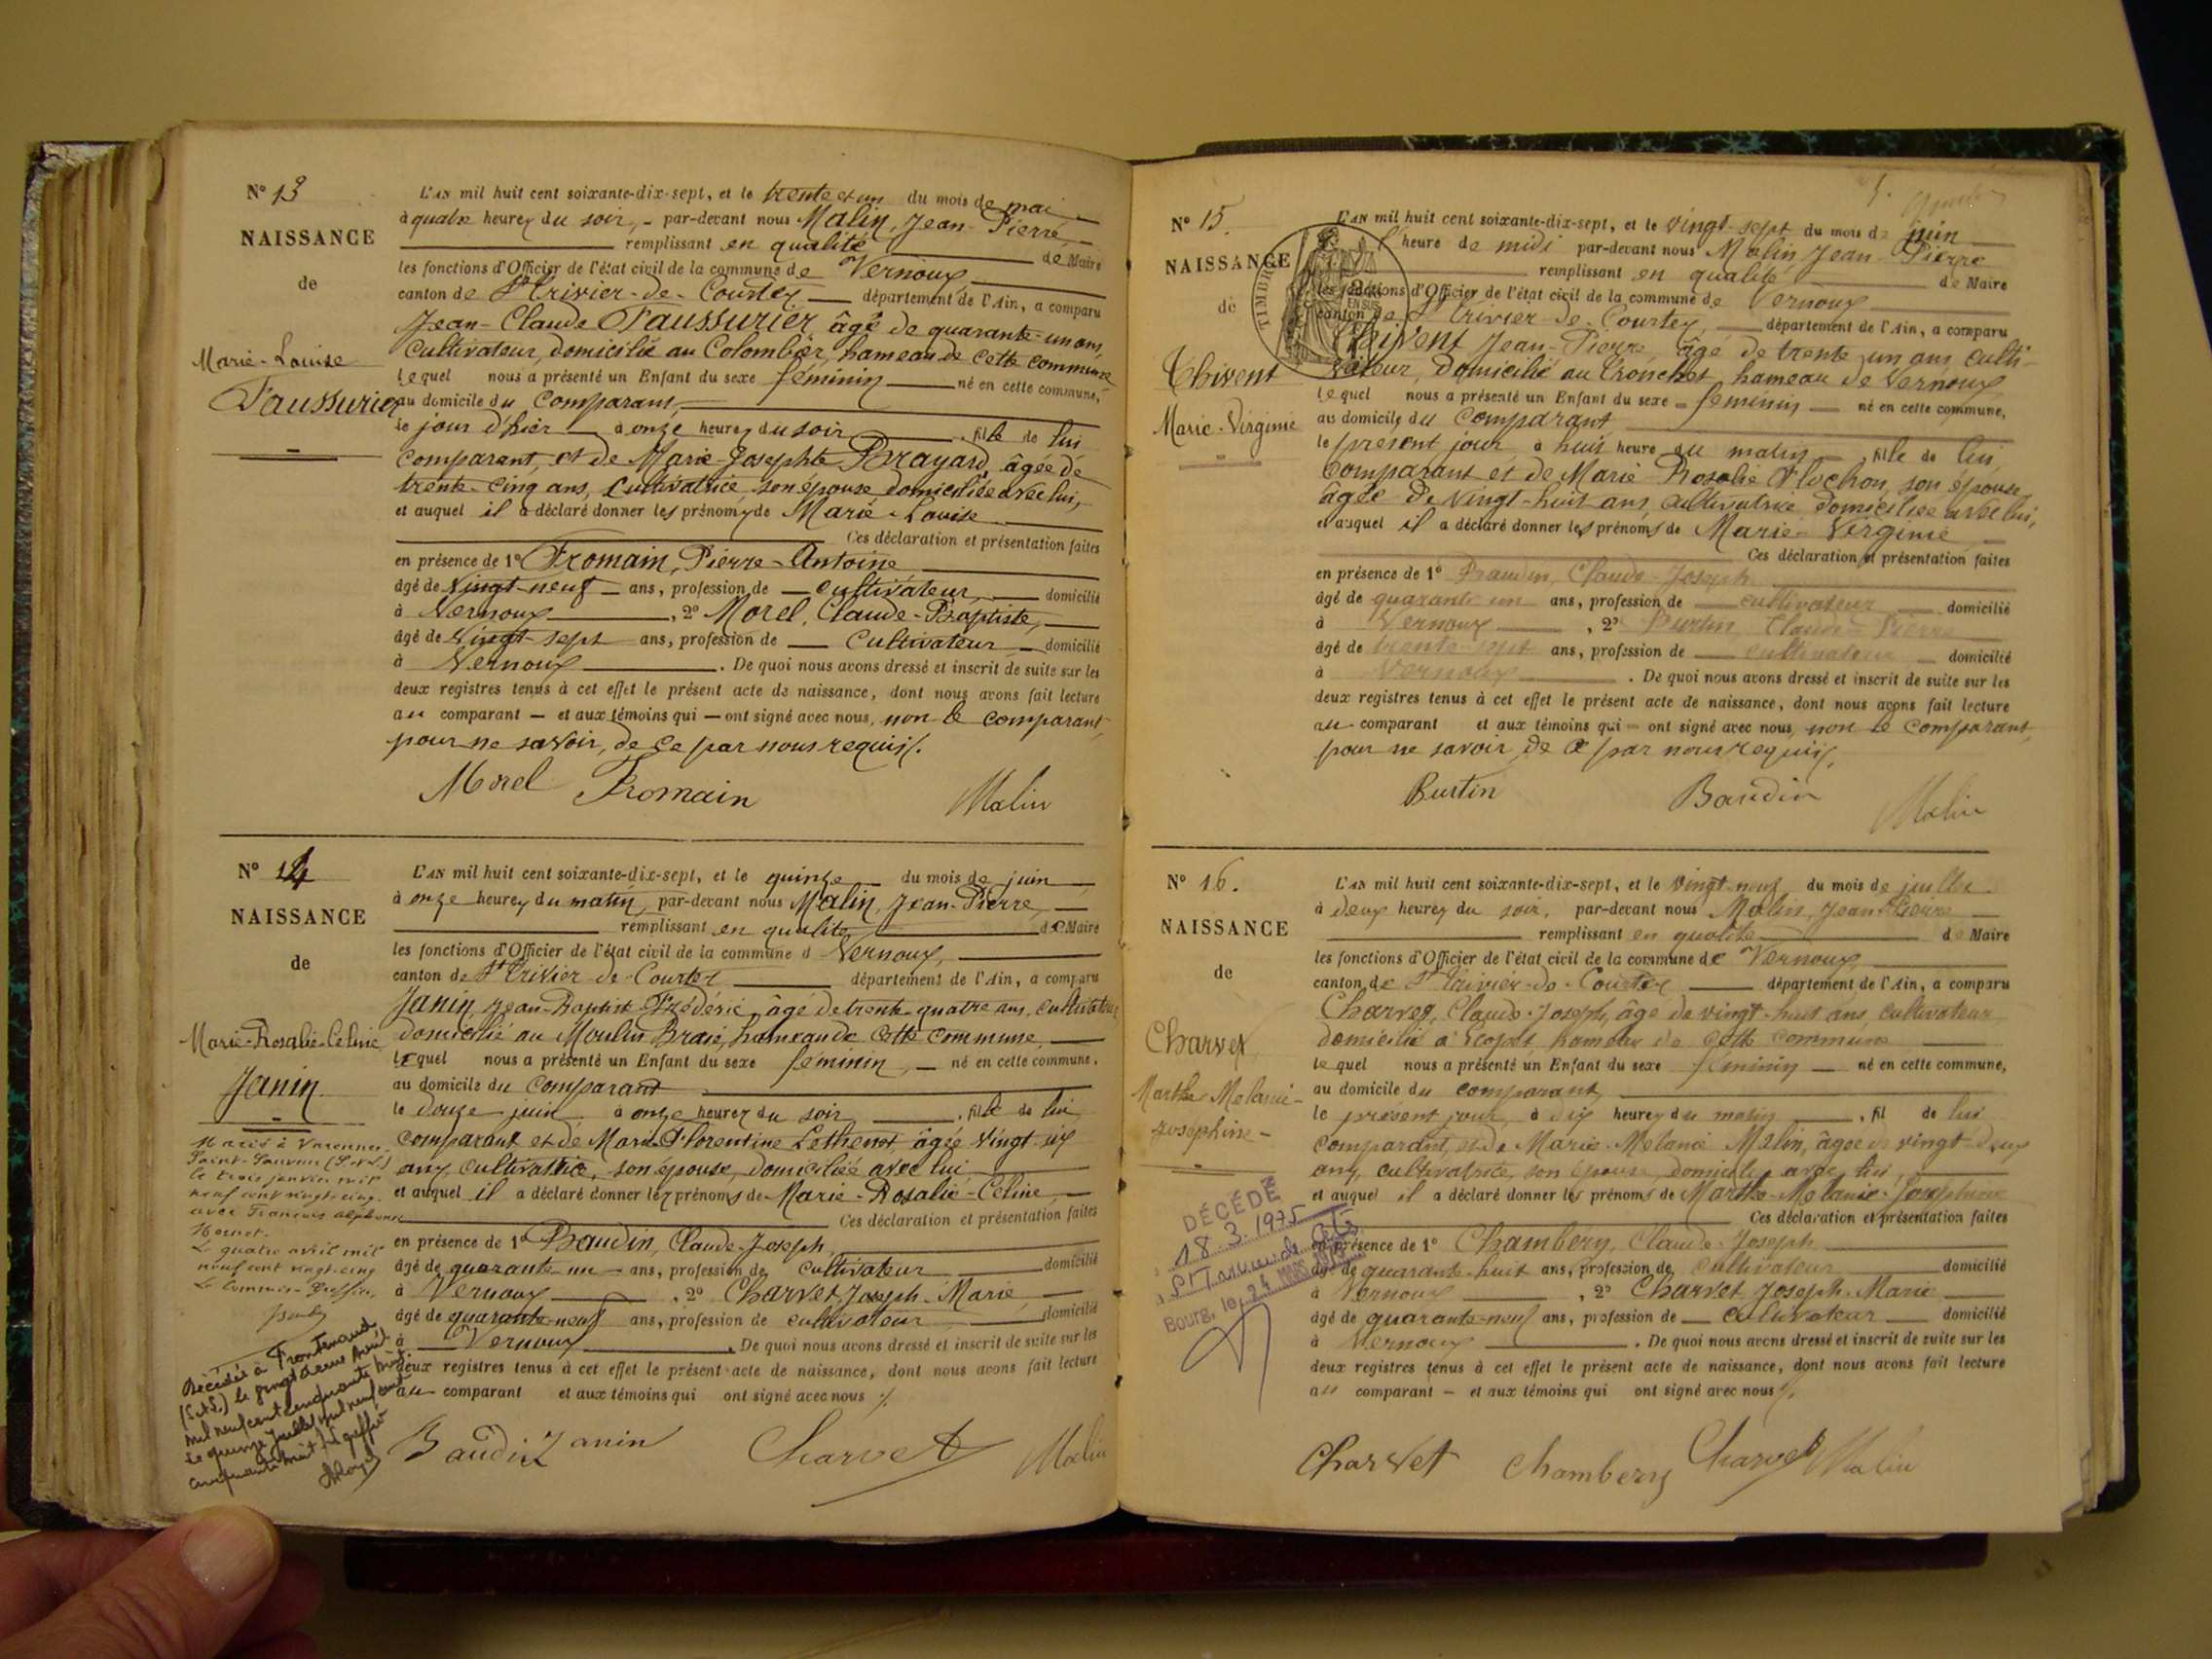 N° 13
NAISSANCE
de
Marie-Louise
Faussurier
L'AN mil huit cent soixante-dix-sept, et le trente et un du mois de mai
à quatre heures du soir, par-devant nous Malin, Jean-Pierre,
remplissant en qualité de Maire
les fonctions d'Officier de l'état civil de la commune de Vernoux,
canton de St Trivier-de-Courtes département de l'Ain, a comparu
Jean-Claude Faussurier, âgé de quarante-un ans,
cultivateur, domicilié au Colombier, hameau de cette commune
lequel nous a présenté un Enfant du sexe féminin né en cette commune,
au domicile du comparant,
le jour d'hier à onze heures du soir, fille de lui
comparant, et de Marie-Josephte Brayard, âgée de
trente-cinq ans, cultivatrice, son épouse, domiciliée avec lui,
et auquel il a déclaré donner les prénoms de Marie-Louise
Ces déclaration et présentation faites
en présence de 1° Fromain, Pierre-Antoine
âgé de vingt-neuf ans, profession de cultivateur, domicilié
à Vernoux, 2° Morel, Claude-Baptiste,
âgé de vingt-sept ans, profession de cultivateur domicilié
à Vernoux. De quoi nous avons dressé et inscrit de suite sur les
deux registres tenus à cet effet le présent acte de naissance, dont nous avons fait lecture
au comparant et aux témoins qui ont signé avec nous, non le comparant
pour ne savoir, de ce par nous requis.
Morel Fromain Malin
N° 14
NAISSANCE
de
Marie-Rosalie-Celine
Janin
Marié à Varennes-
Saint-Sauveur (S.-et-L.)
le trois janvier mil
neuf cent vingt-cinq
avec François Alphonse
Le quatre avril mil
neuf cent vingt-cinq
Décédée à Frontenaud
(S.et.L.) le
mil neuf cent cinquante huit.
Le quinze juillet mil neuf cent
cinquante huit. Le greffier
L'AN mil huit cent soixante-dix-sept, et le quinze du mois de juin
à onze heures du matin, par-devant nous Malin, Jean-Pierre,
remplissant en qualité de Maire
les fonctions d'Officier de l'état civil de la commune d Vernoux,
canton de St Trivier-de-Courtes département de l'Ain, a comparu
Janin, Jean-Baptiste-Frédéric, âgé de trente-quatre ans, cultivateur
domicilié au Moulin Braie, hameau de cette commune,
lequel nous a présenté un Enfant du sexe féminin, né en cette commune,
au domicile du comparant
le douze juin à onze heures du soir, fille de lui
comparant et de Marie Florentine Lethenet, âgée vingt six
ans, cultivatrice, son épouse, domiciliée avec lui
et auquel il a déclaré donner les prénoms de Marie-Rosalie-Celine
Ces déclaration et présentation faites
en présence de 1° Baudin, Claude-Joseph
âgé de quarante-un ans, profession de cultivateur domicilié
à Vernoux, 2° Charvet, Joseph-Marie,
âgé de quarante-neuf ans, profession de cultivateur domicilié
à Vernoux. De quoi nous avons dressé et inscrit de suite sur les
deux registres tenus à cet effet le présent acte de naissance, dont nous avons fait lecture
au comparant et aux témoins qui ont signé avec nous
Baudin Janin Charvet Malin
N° 15.
NAISSANCE
de
Thivent
Marie-Virginie
TIMBRE
EN SUS
L'AN mil huit cent soixante-dix-sept, et le vingt-sept du mois de juin
l'heure de midi par-devant nous Malin, Jean-Pierre
remplissant en qualité de Maire
les fonctions d'Officier de l'état civil de la commune de Vernoux
canton de St Trivier-de-Courtes, département de l'Ain, a comparu
Thivent Jean-Pierre, âgé de trente un ans, culti-
vateur, domicilié au Tronchet, hameau de Vernoux,
lequel nous a présenté un Enfant du sexe féminin né en cette commune,
au domicile du comparant
le présent jour, à huit heure du matin, fille de lui,
comparant et de Marie Rosalie Flochon, son épouse,
âgée de vingt-huit ans, cultivatrice domiciliée avec lui,
et auquel il a déclaré donner les prénoms de Marie-Virginie
Ces déclaration et présentation faites
en présence de 1° Baudin, Claude-Joseph
âgé de quarante un ans, profession de cultivateur domicilié
à Vernoux, 2° Burtin Claude-Pierre
âgé de trente-sept ans, profession de cultivateur domicilié
à Vernoux. De quoi nous avons dressé et inscrit de suite sur les
deux registres tenus à cet effet le présent acte de naissance, dont nous avons fait lecture
au comparant et aux témoins qui ont signé avec nous, non le comparant,
pour ne savoir, de ce par nous requis,
Burtin Baudin Malin
N° 16.
NAISSANCE
de
Charvet
Marthe-Melanie-
Joséphine-
DÉCÉDÉ
18.3.1975
Bourg, le 24 MARS 1975
L'AN mil huit cent soixante-dix-sept, et le vingt-neuf du mois de juillet.
à deux heures du soir, par-devant nous Malin, Jean-Pierre
remplissant en qualité de Maire
les fonctions d'Officier de l'état civil de la commune de Vernoux
canton de St Trivier-de-Courtes département de l'Ain, a comparu
Charvet, Claude-Joseph, âgé de vingt-huit ans, cultivateur
domicilié à Ecopet hameau de cette commune
lequel nous a présenté un Enfant du sexe féminin né en cette commune,
au domicile du comparant
le présent jour, à dix heures du matin, fil de lui
comparant, et de Marie-Melanie Malin, âgée de vingt-deux
ans, cultivatrice, son épouse, domiciliée avec lui,
et auquel il a déclaré donner les prénoms de Marthe-Melanie-Josephine
Ces déclaration et présentation faites
en présence de 1° Chambéry, Claude-Joseph
âgé de quarante-huit ans, profession de cultivateur domicilié
à Vernoux, 2° Charvet Joseph-Marie
âgé de quarante-neuf ans, profession de cultivateur domicilié
à Vernoux. De quoi nous avons dressé et inscrit de suite sur les
deux registres tenus à cet effet le présent acte de naissance, dont nous avons fait lecture
au comparant et aux témoins qui ont signé avec nous
Charvet Chambery Charvet Malin